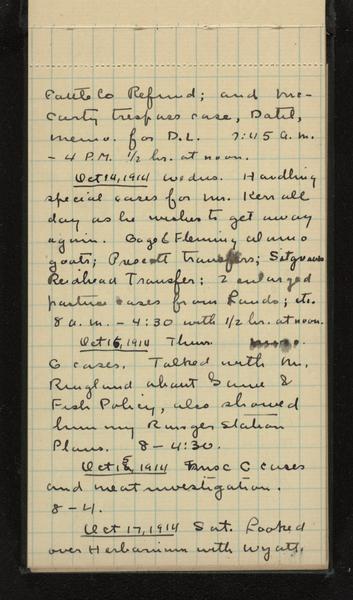 Cattle Co Refund; and Mc-
Carty trespass case, Datil,
memo. for D.L. 7:45 a.m.
- 4 P.M. 1/2 hr. at noon.
Oct 14, 1914 Wednes. Handling
special cases for Mr. Kerr all
day as he wishes to get away
again. Gage & Fleming Alamo
goats; Prescott transfers; Sitgreaves
Redhead Transfer; 2 enlarged
partner cases from Lands; etc.
8 a.m. - 4:30 with 1/2 hr. at noon.
Oct 15, 1914 Thur.
G cases. Talked with Mr.
Ringland about Game &
Fish Policy, also showed
him my Ranger Station
Plans. 8 - 4:30.
Oct 1 , 1914 Misc G cases
and meat investigation.
8 - 4.
Oct 17, 1914 Sat. Looked
over Herbarium with Wyatt.